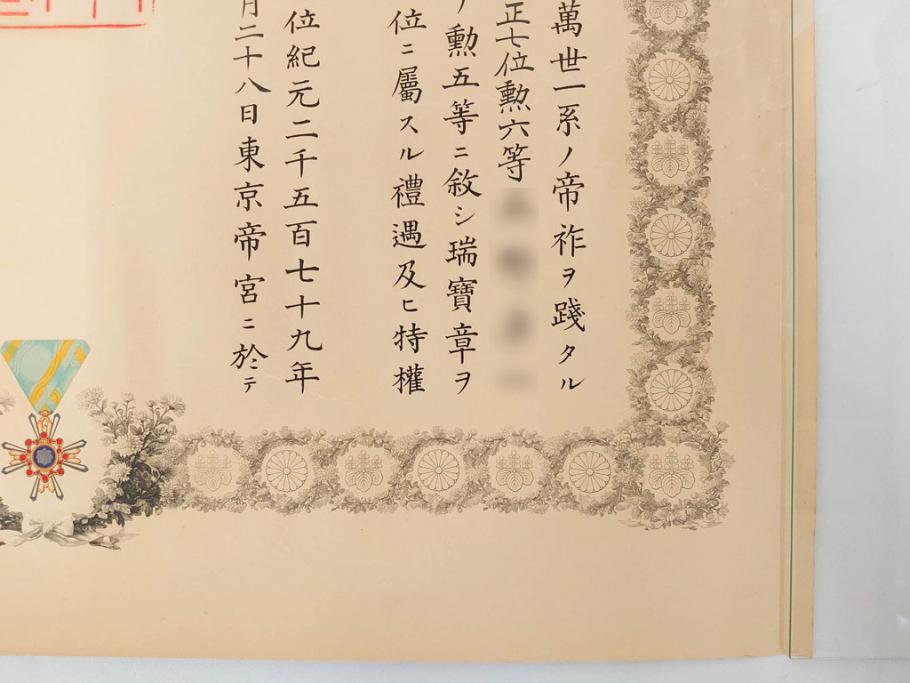 萬世一系ノ帝祚ヲ踐タル
正七位勲六等
勲五等ニ敘シ瑞寶章ヲ
位ニ屬スル禮遇及ヒ特權
位紀元二千五百七十九年
月二十八日東京帝宮ニ於テ